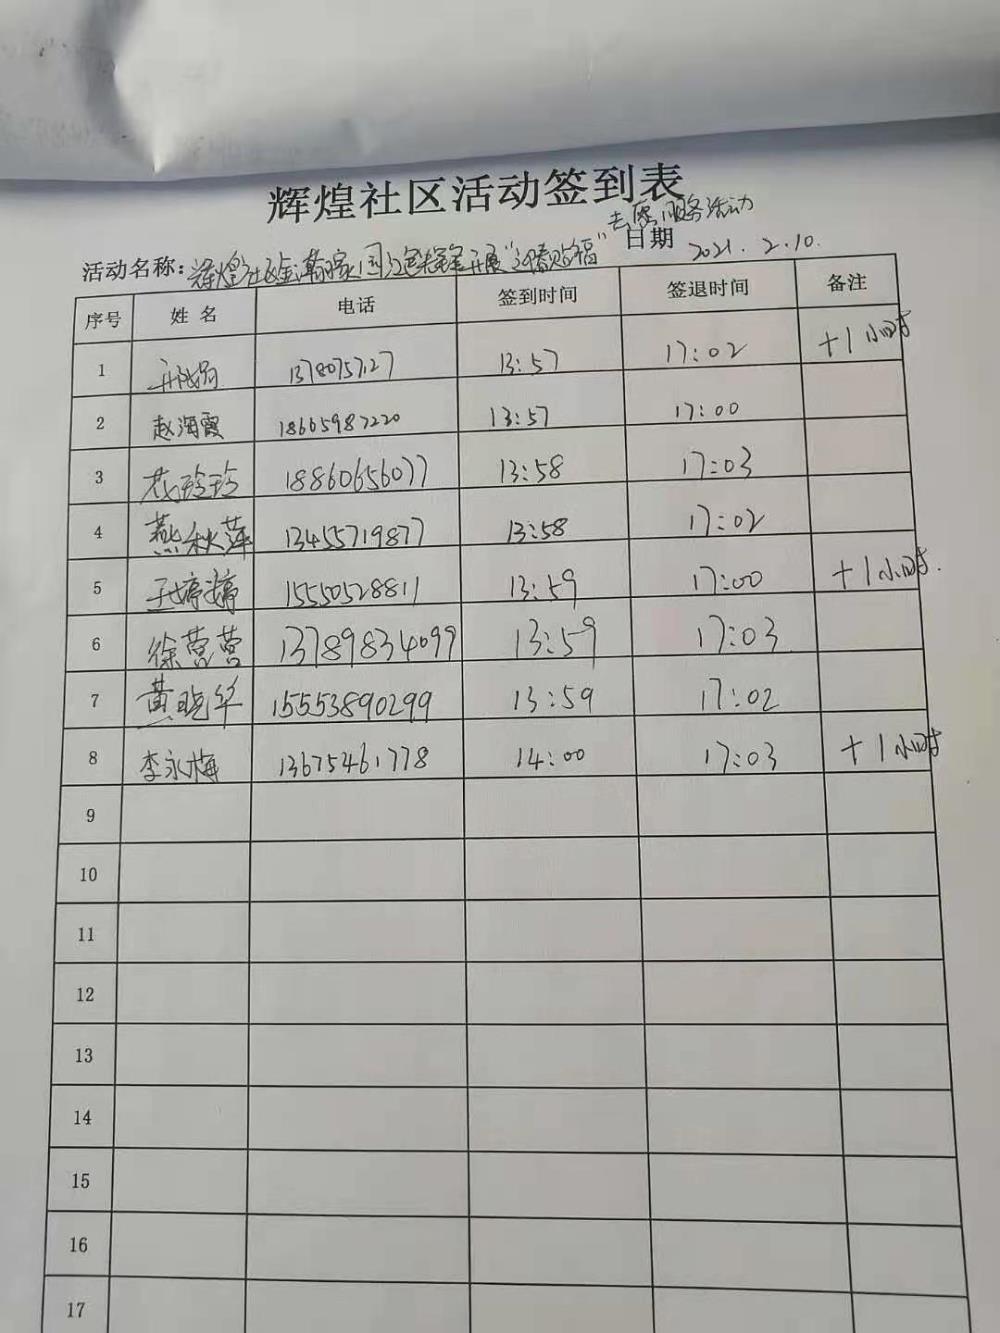 辉煌社区活动签到表
志愿服务活动
活动名称：辉煌社区金瀚家园 开展"迎春贴福" 日期 2021.2.10.
序号 姓名 电话 签到时间 签退时间 备注
1 13:57 17:02 +1小时
2 赵海霞 18605987220 13:57 17:00
3 玲玲 18860656077 13:58 17:03
4 燕秋萍 13455719877 13:58 17:02
5 婷婷 15550528811 13:59 17:00 +1小时.
6 徐营营 13789834099 13:59 17:03
7 黄晓华 15553890299 13:59 17:02
8 李永梅 13675461778 14:00 17:03 +1小时
9
10
11
12
13
14
15
16
17